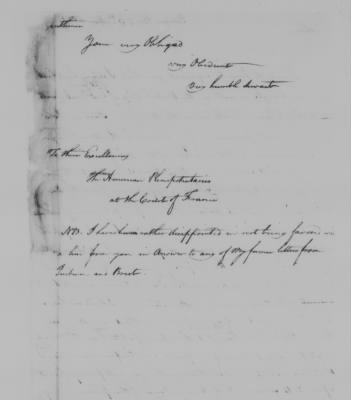 Your very Obliged
very Obedient
very humble Servant
To their Excellencies
The American Plenipotentiaries
at the Court of France
NB. I have been rather disappointed in not being favored with
a line from you in Answer to any of my former letters from
and Brest